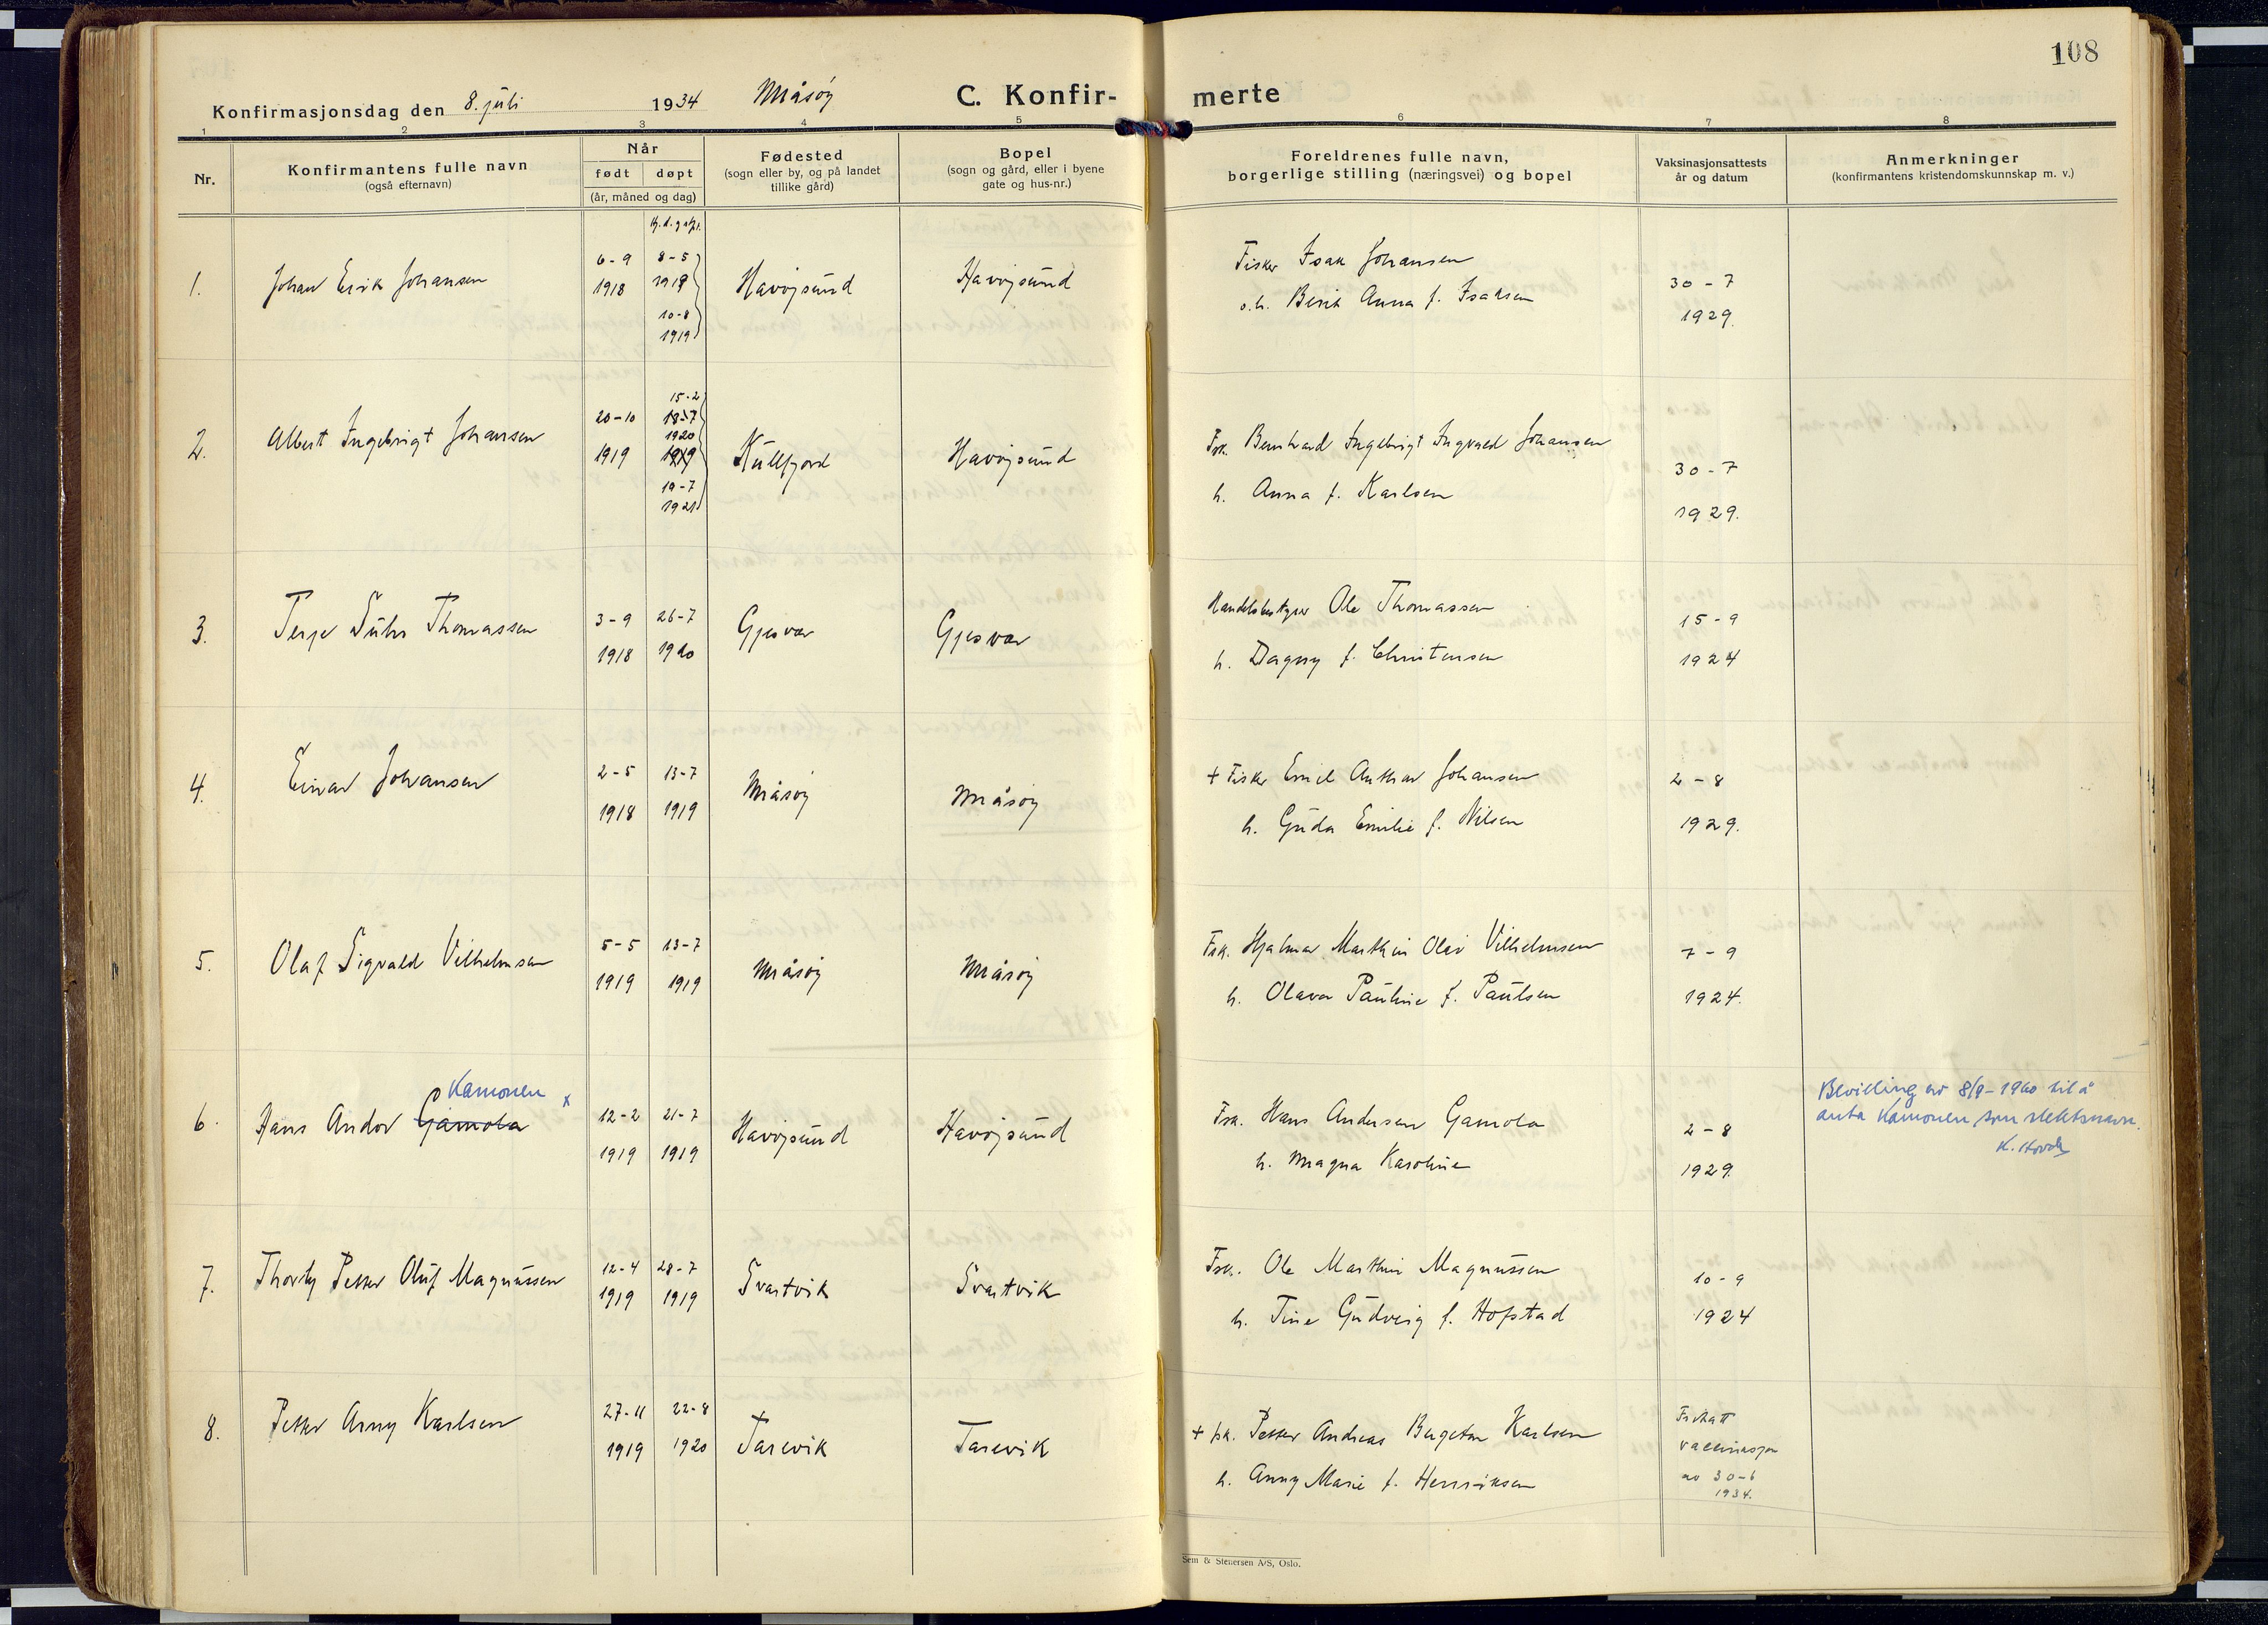 108
Konfirmasjonsdag den 8. juli 1934 Måsøy C. Konfirmerte
1 2 3 4 5 6 7 8
Nr.
Konfirmantens fulle navn
(også efternavn)
Når
født døpt
(år, måned og dag)
Fødested
(sogn eller by, og på landet
tillike gård)
Bopel
(sogn og gård, eller i byene
gate og hus-nr.)
Foreldrenes fulle navn,
borgerlige stilling (næringsvei) og bopel
Vaksinasjonsattests
år og datum
Anmerkninger
(konfirmantens kristendomskunnskap m. v.)
1. Johan Erik Johansen
6-9
1918
8-5
1919
10-8
1919
Havøjsund
Havøjsund
Fisker Isak Johansen
o.h. Berit Anna f. Isaksen
30-7
1929.
2. Albert Ingebrigt Johansen
20-10
1919
15-2
1920
19-7
1921
Kullfjord
Havøjsund
Fsk. Bernhard Ingebrigt Ingvald Johansen
h. Anna f. Karlsen
30-7
1929.
3. Terje Suhr Thomassen
3-9
1918
26-7
1920
Gjesvær
Gjesvær
Handelsbestyrer Ole Thomassen
h. Dagny f. Christensen
15-9
1924
4. Einar Johansen
2-5
1918
13-7
1919
Måsøy
Måsøy
+ Fisker Emil Anthar Johansen
h. Guda Emilie f. Nilsen
2-8
1929.
5. Olaf Sigvald Vilhelmsen
5-5
1919
13-7
1919
Måsøy
Måsøy
Fsk. Hjalmar Marthin Olai Vilhelmsen
h. Olava Pauline f. Paulsen
7-9
1924.
Kamonen x
6. Hans Andor Gamola
12-2
1919
21-7
1919
Havøjsund
Havøjsund
Fsk. Hans Andersen Gamola
h. Magna Karoline
2-8
1929.
Bevilling av 8/9-1960 til å
anta Kamonen som slektsnavn.
7. Thorly Petter Oluf Magnussen
12-4
1919
28-7
1919
Svartvik
Svartvik
Fsk. Ole Marthin Magnussen
h. Tine Gudveig f. Hofstad
10-9
1924
8. Petter Arny Karlsen
27-11
1919
22-8
1920
Tarevik
Tarevik
+ fsk. Petter Andreas Bergeton Karlsen
h. Anny Marie f. Henriksen
Fritatt
vaccinasjon
av 30-6
1934.
Sem & Stenersen A/S, Oslo.